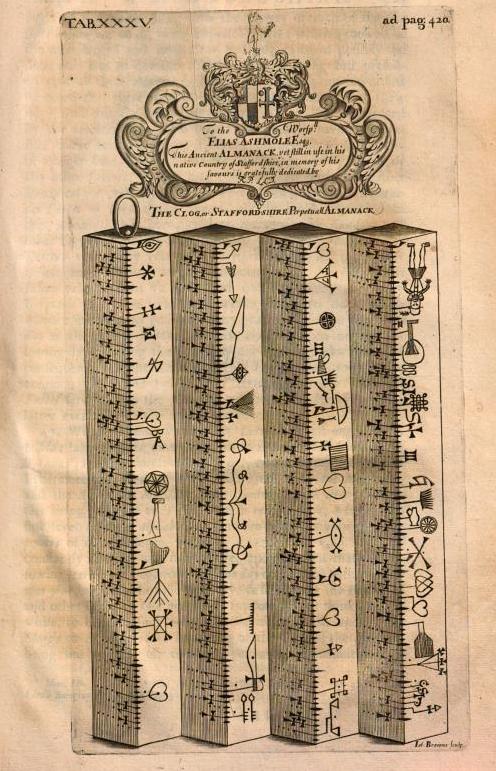 TAB.XXXV.
ad pag: 420
To the Worsp.ll
ELIAS ASHMOLE Esq;
This Ancient ALMANACK, yet still in use in his
native Country of Staffordshire, in memory of his
favours is gratefully dedicated by
THE CLOG, or STAFFORDSHIRE Perpetuall ALMANACK